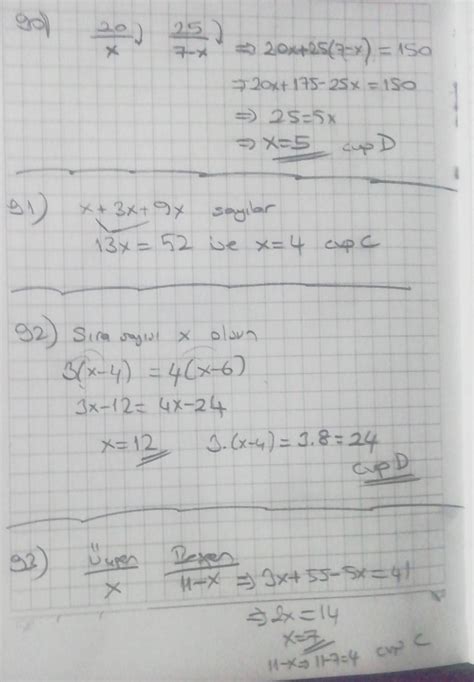 90) 20/x 25/7-x ⇒ 20x+25(7-x) = 150
⇒ 20x+175-25x = 150
⇒ 25=5x
⇒ x=5 cvp D
91) x+3x+9x sayılar
13x = 52 ise x=4 cvp C
92) Sıra sayısı x olsun
3(x-4) = 4(x-6)
3x-12 = 4x-24
x=12 3.(x-4) = 3.8 = 24
cvp D
93) Üçgen/x Beşgen/11-x ⇒ 3x+55-5x = 41
⇒ 2x = 14
x=7
11-x ⇒ 11-7=4 cvp C